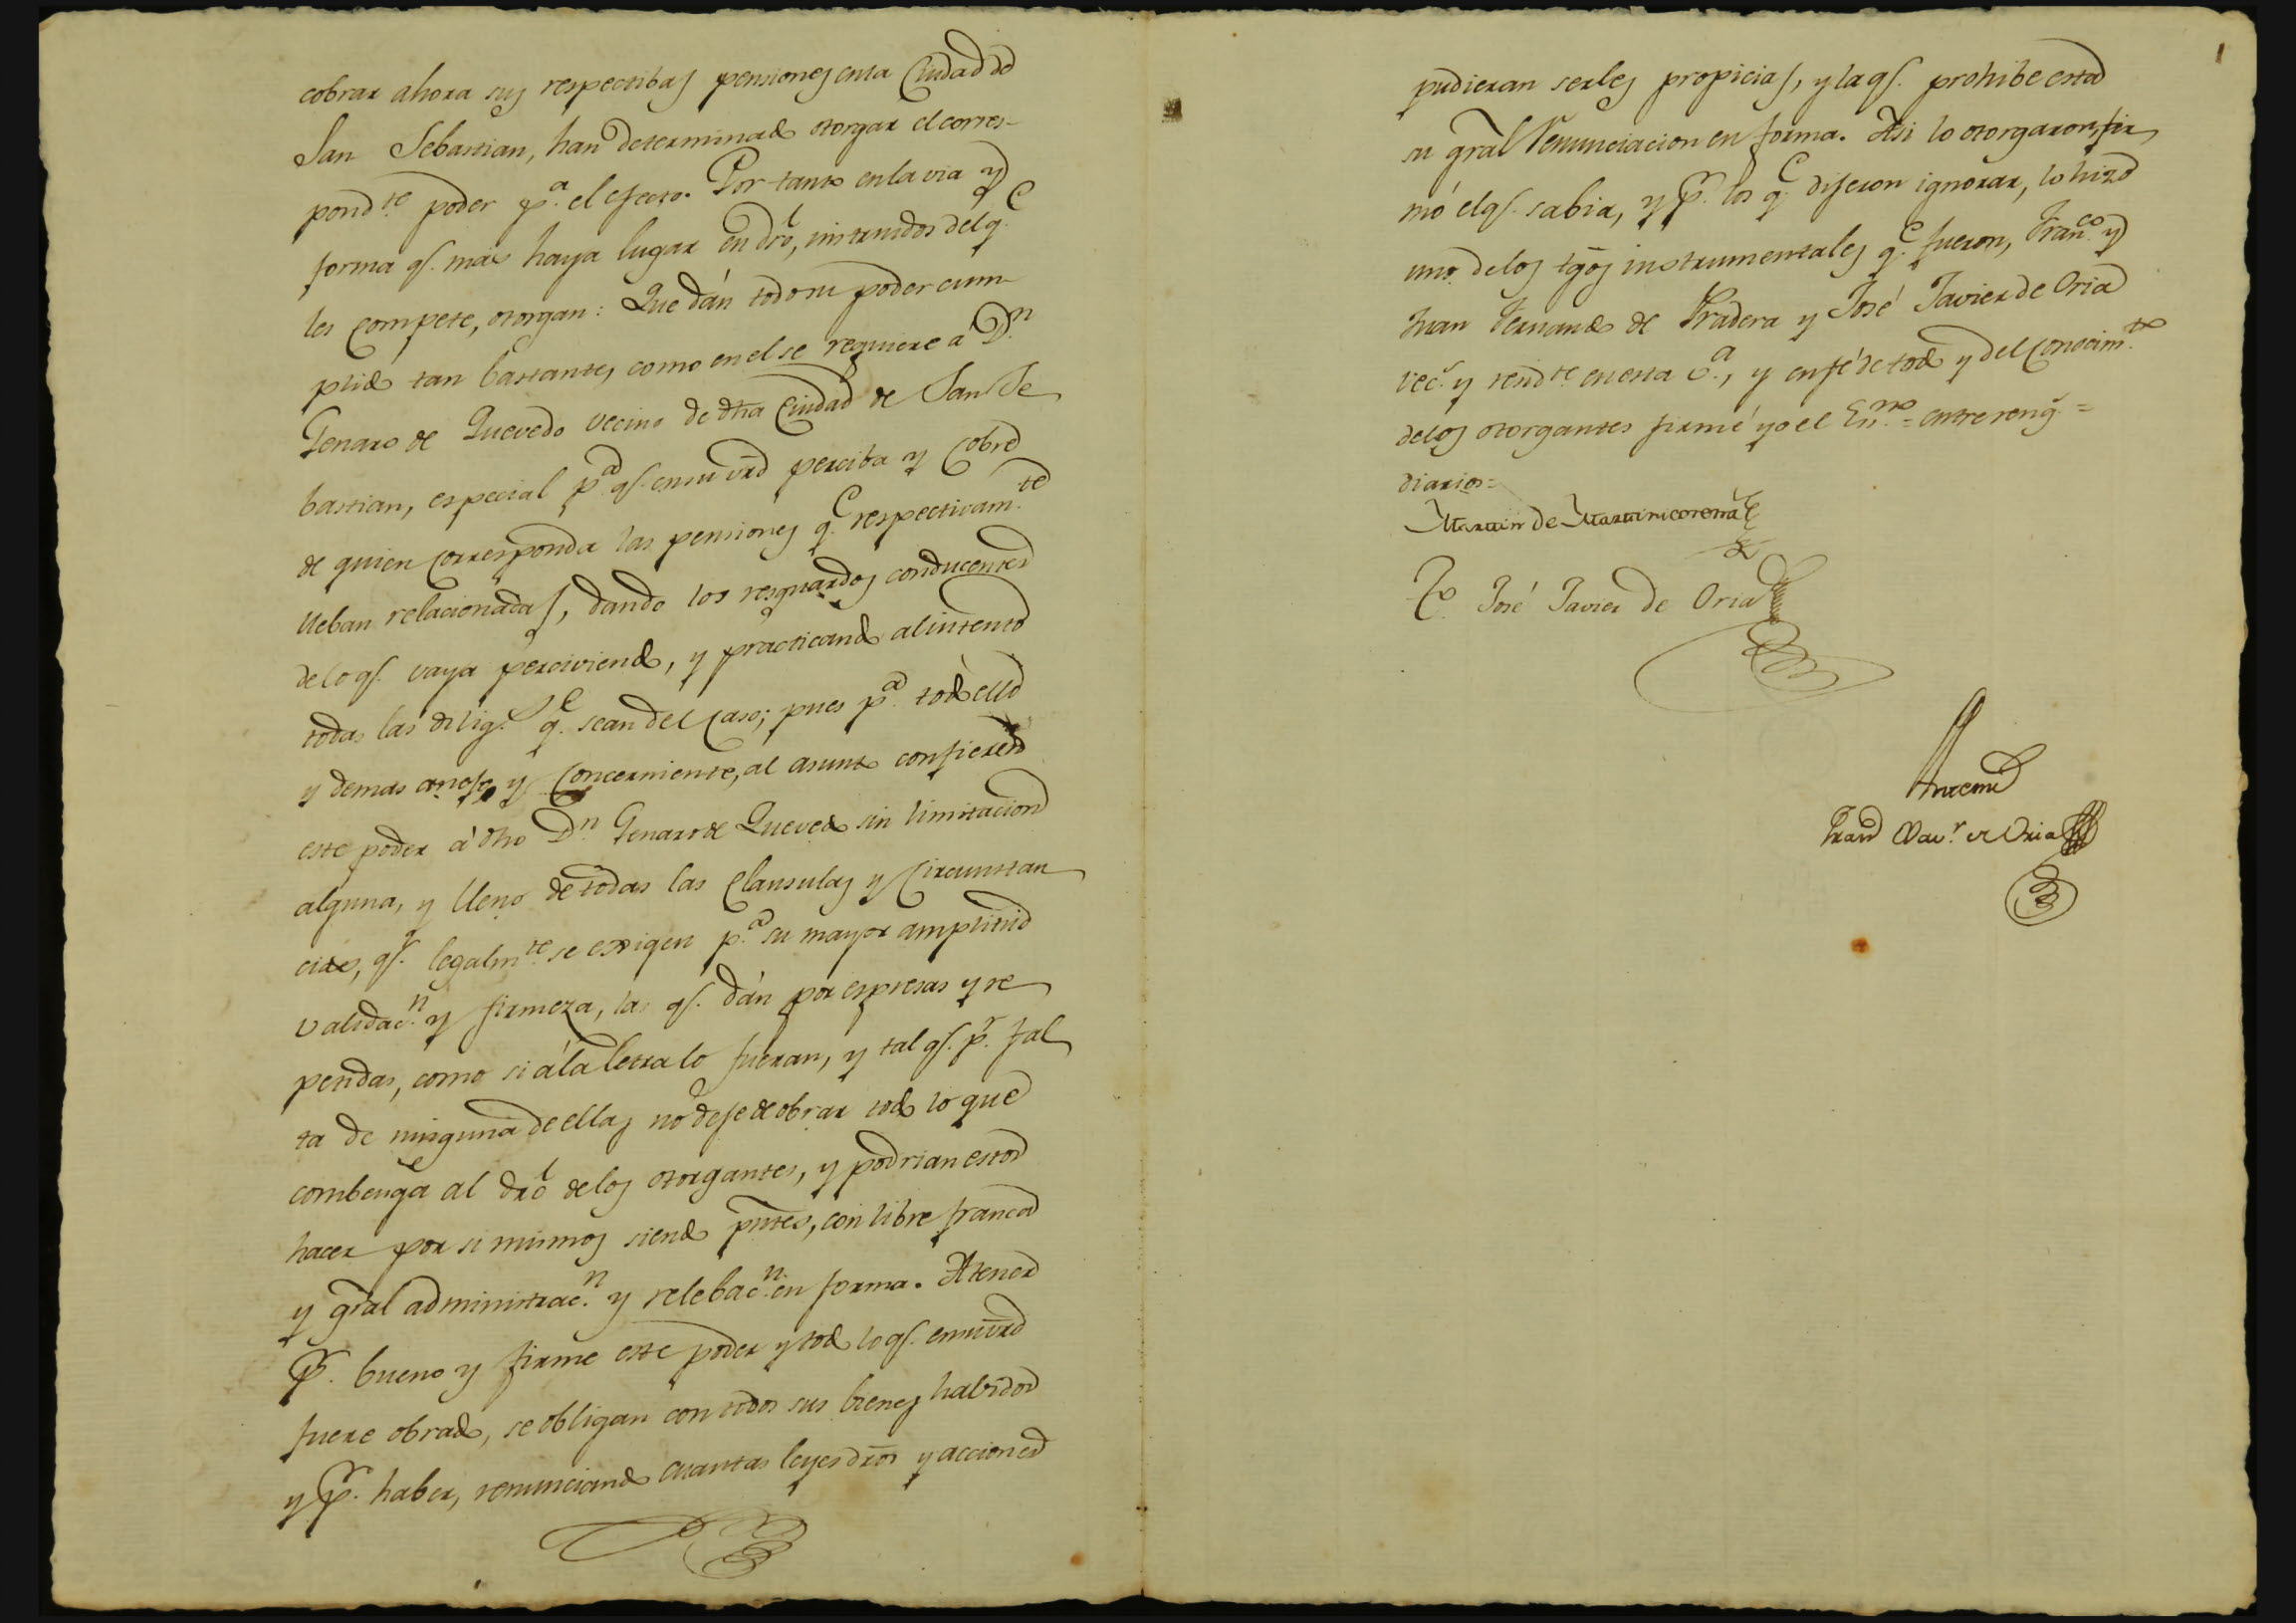 cobrar ahora sus respectibas pensiones en la Ciudad de
San Sebastian, han determinado otorgar el corres-
pond.te poder p.a el efecto. Por tanto en la via y
forma q.e mas haya lugar en dro, instruidos del q.e
les compete, otorgan: Que dán todo su poder cum
plido tan bastante, como en el se requiere a D.n
Genaro de Quevedo vecino de dha Ciudad de San Se
bastian, especial p.a q.e en su vrd perciba y cobre
de quien corresponda las pensiones q.e respectivam.te
lleban relacionadas, dando los resguardos conducentes
de lo q.e vaya perciviendo, y practicando al intento
todas las dilig.s q.e sean del caso; pues p.a todo ello
y demas anejo y concerniente, al asunto confieren
este poder á dho D.n Genaro de Quevedo sin limitacion
alguna, y lleno de todas las clausulas y circunstan
cias, q.e legalm.te se exigen p.a su mayor amplitud
validac.n y firmeza, las q.e dán por espresas y re
petidas, como si á la letra lo fueran, y tal q.e p.r fal
ta de ninguna de ellas no deje de obrar todo lo que
combenga al dro de los otorgantes, y podrian estos
hacer por si mismos siendo pntes, con libre franca
y gral administrac.n y relebac.n en forma. A tener
p.r bueno y firme este poder y todo lo q.e en su vrd
fuere obrado, se obligan con todos sus bienes habidos
y p.r haber, renunciando cuantas leyes dros y acciones
pudieran serles propicias, y la q.e prohibe esta
su gral renunciacion en forma. Asi lo otorgaron, fir
mó el q.e sabia, y p.r los q.e dijeron ignorar, lo hizo
uno de los tgos instrumentales q.e fueron, Fran.co y
Juan Fernando de Pradera y José Javier de Oria
vec.s y resid.te en esta v.a, y en fé de todo y del conocim.to
de los otorgantes firmé yo el Es.no = entre reng.s =
diarios =
Martin de Martinicorena
T.o José Javier de Oria
Ante mi
Fran.co Xav.r de Oria